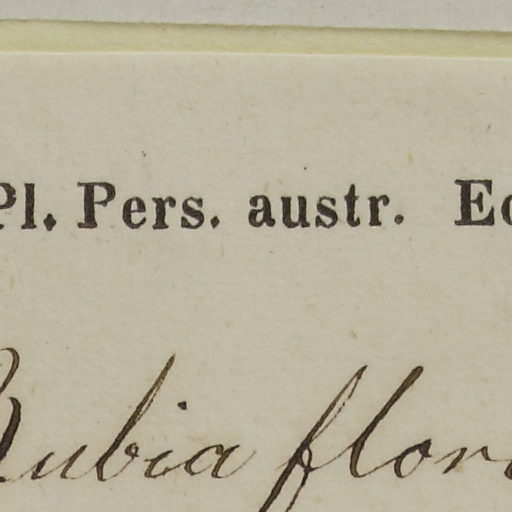 Pl. Pers. austr. Ed
Rubia flor